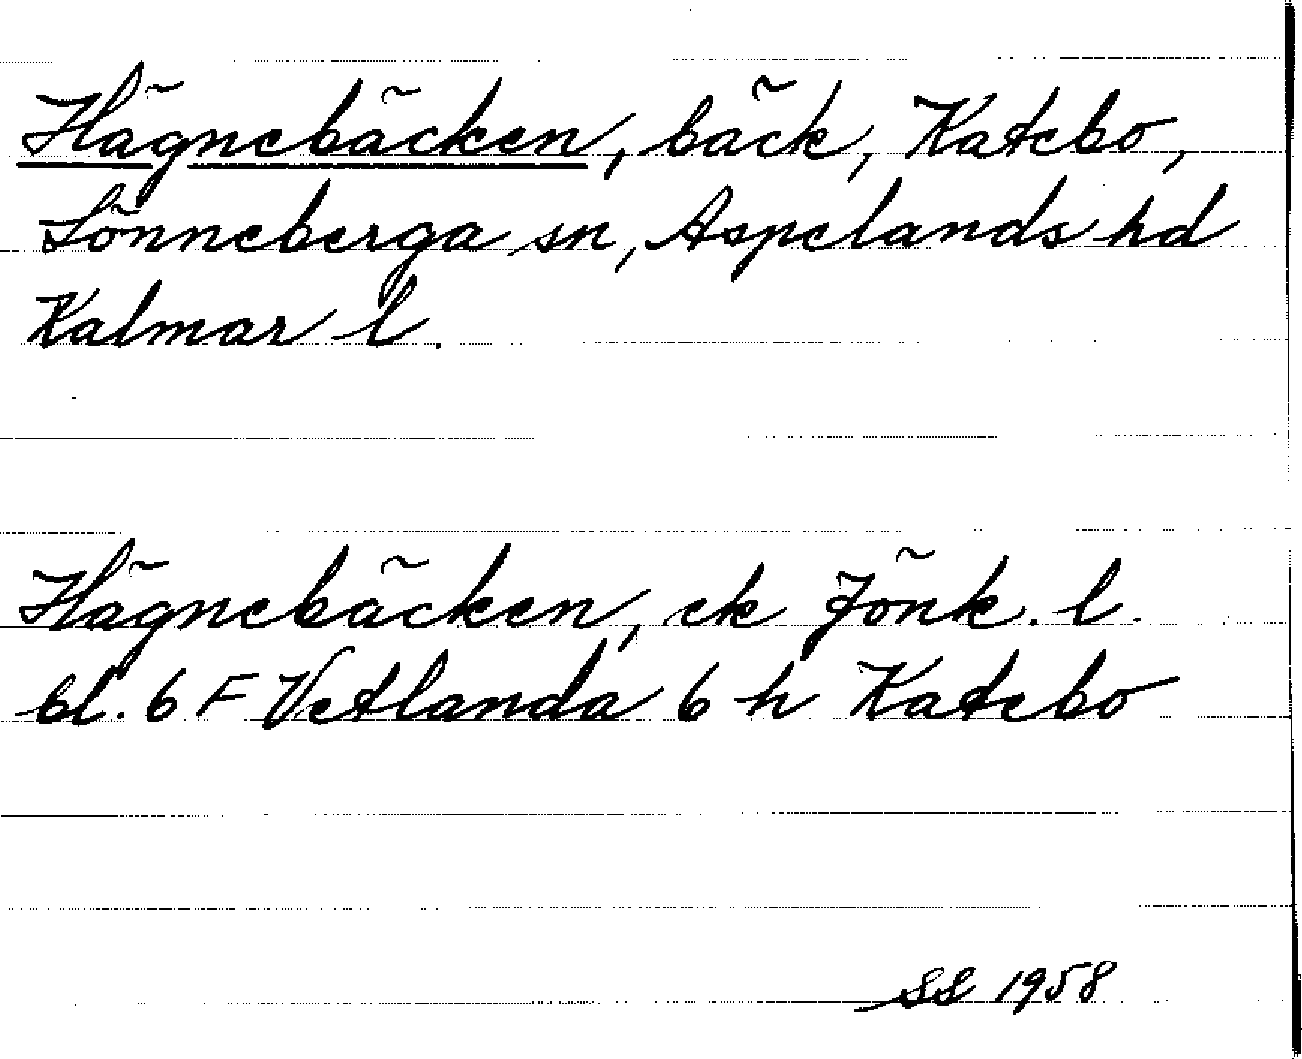 Hägnebäcken, bäck, Katebo,
Lönneberga sn, Aspelands hd
Kalmar l.
Hägnebäcken, ek Jönk. l.
bl. 6 F Vetlanda 6 h Katebo
SS 1958